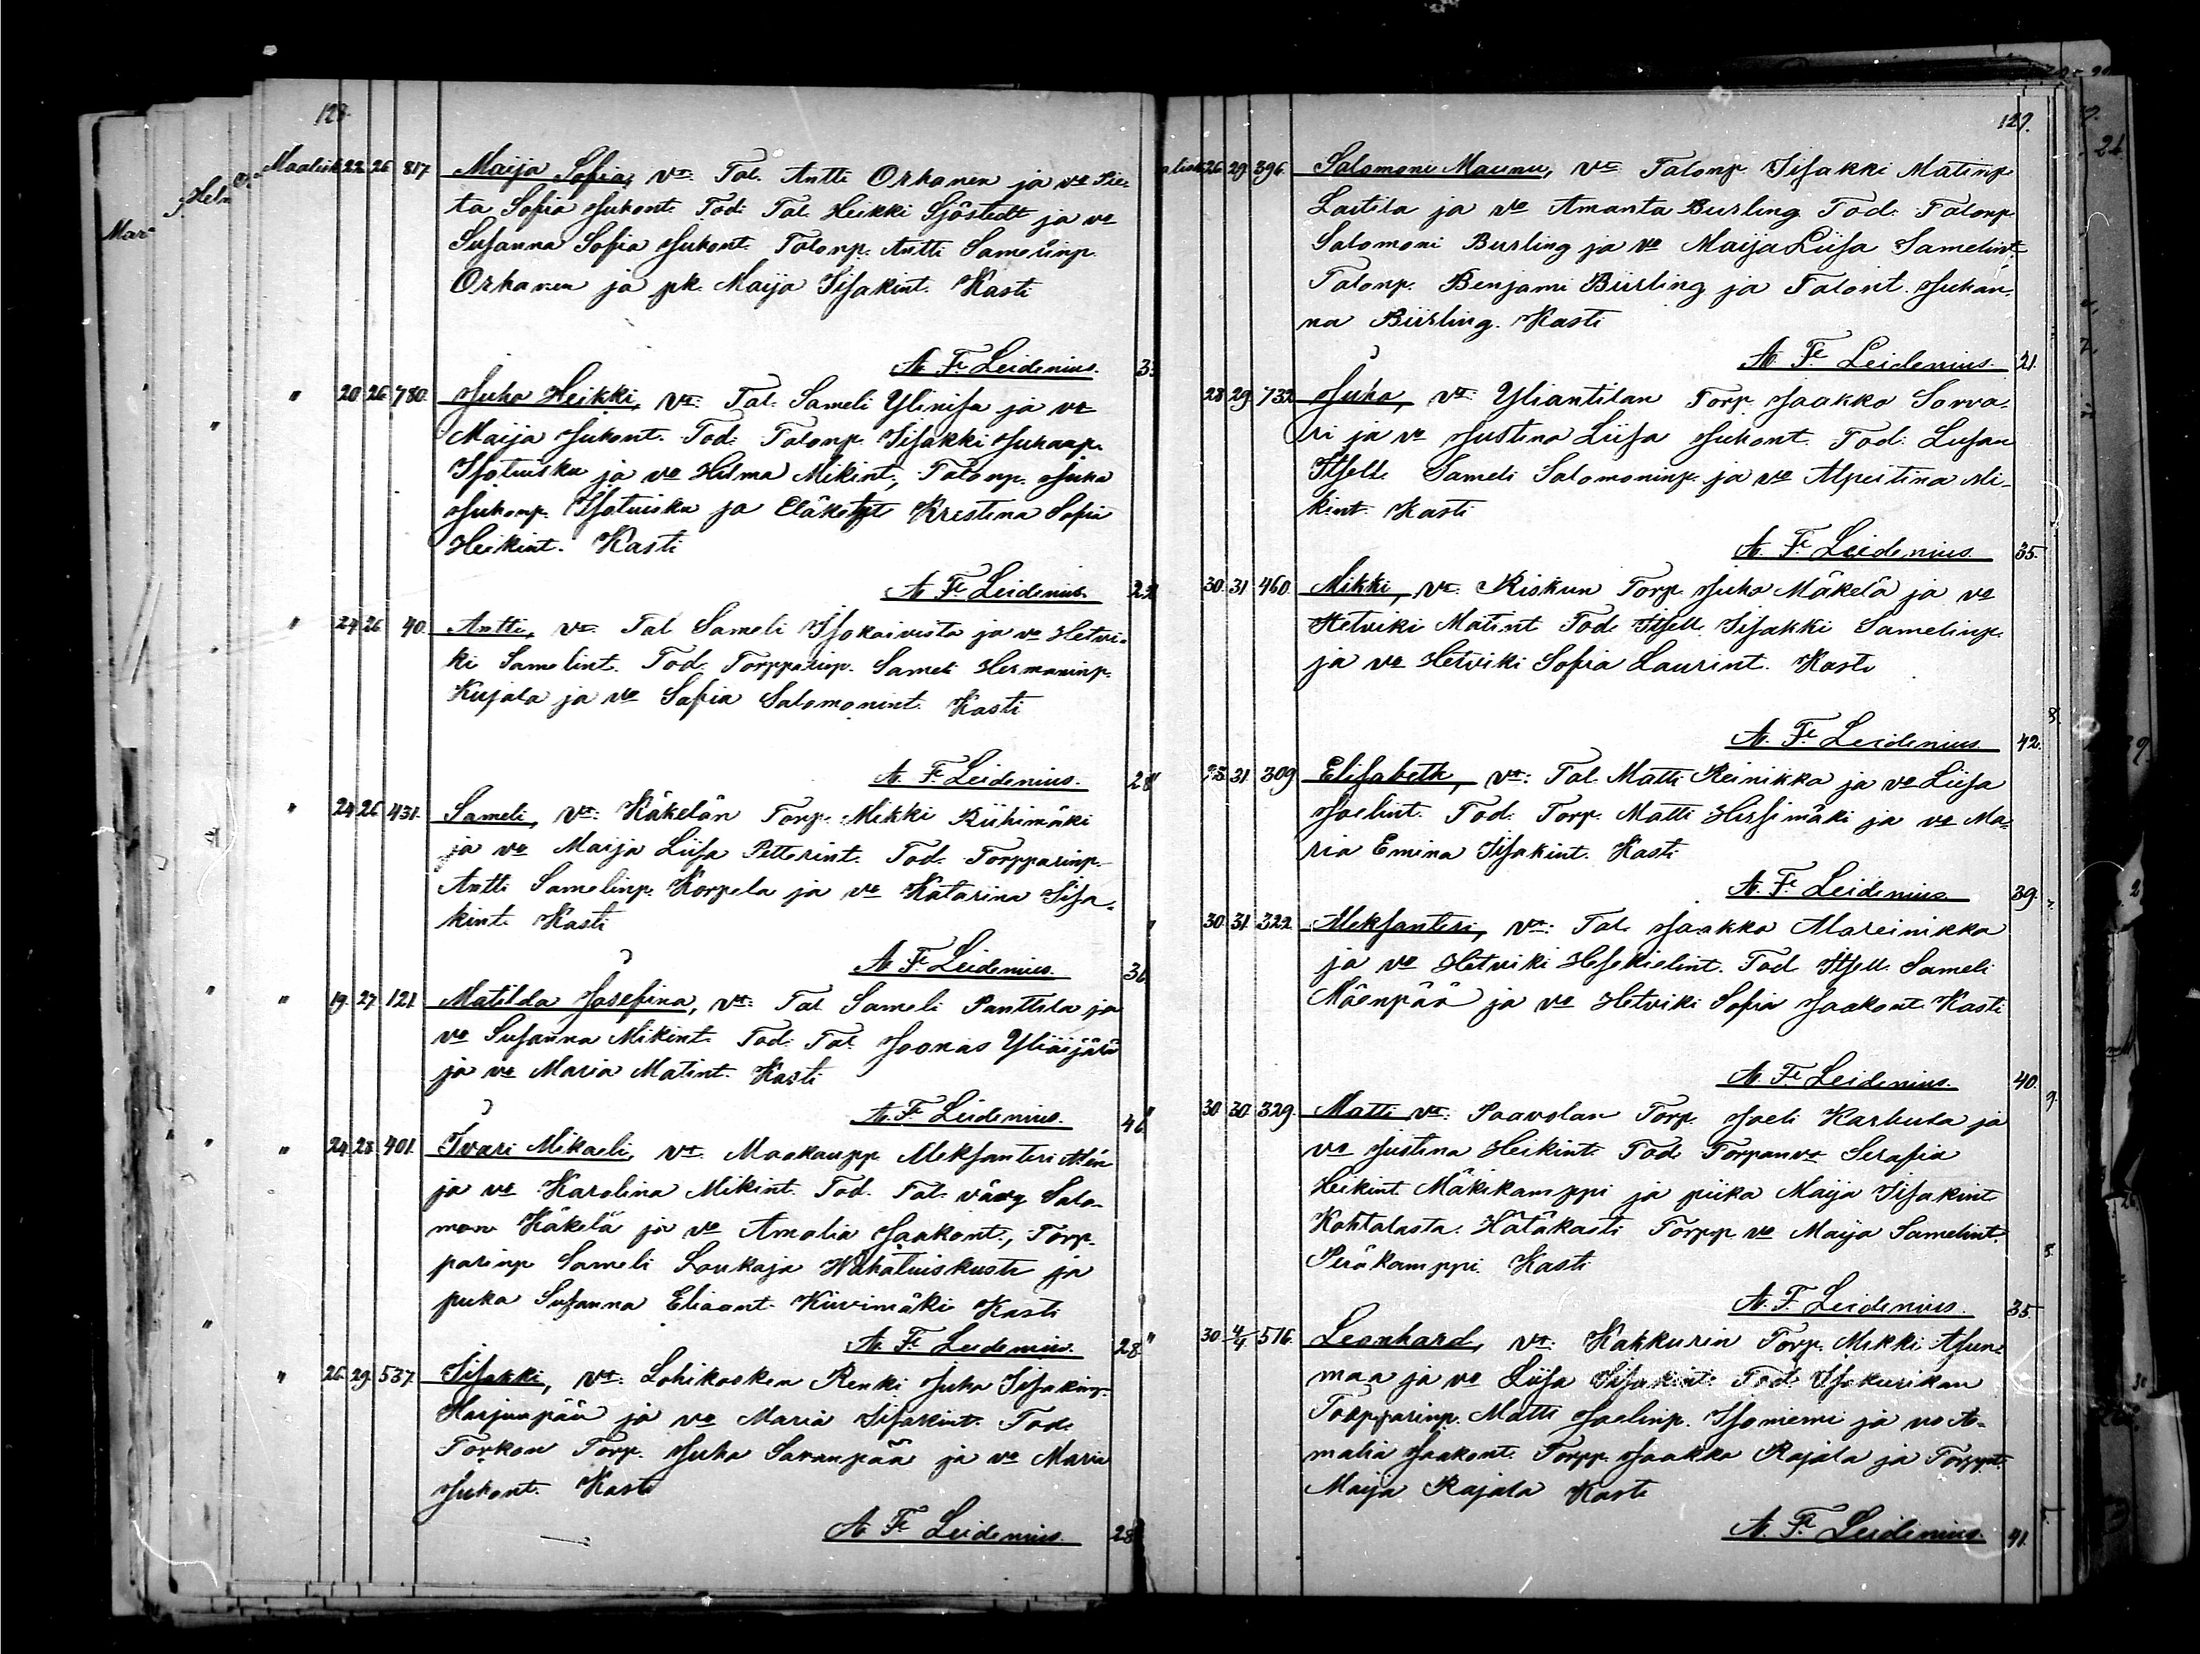 128.
Maalisk. 22. 26. 817. Maija Sofia, vt: Tal. Antti Orhanen ja vo Pie-
ta Sofia Juhont. Tod: Tal. Heikki Sjöstedt ja vo
Susanna Sofia Juhont. Talonp. Antti Samelinp.
Orhanen ja pk. Maija Iisakint. Kasti
A. F. Leidenius.
" 20 26 780. Juho Heikki, vt: Tal. Sameli Ylinisa ja vo
Maija Juhont. Tod: Talonp. Iisakki Juhaanp.
Isotuisku ja vo Hilma Mikint., Talonp. Juha
Juhonp. Isotuisku ja Kristina Sofia
Heikint. Kasti
A. F. Leidenius.
" 24 26 40. Antti, vt: Tal Sameli Isokaivosta ja vo Hetvi-
ki Samelint. Tod: Torpparinp. Sameli Hermaninp.
Kujala ja vo Sofia Salomonint. Kasti
A. F. Leidenius. 28
" 24 26 431. Sameli, vt: Käkelän Torp. Mikki Riihimäki
ja vo Maija Liisa Petterint. Tod: Torpparinp.
Antti Samelinp. Korpela ja vo Katariina Iisa-
kint. Kasti
A. F. Leidenius.
" 19. 27. 121. Matilda Josefina, vt: Tal Sameli Panttila ja
vo Susanna Mikint. Tod: Tal. Joonas Yliäijälä
ja vo Maria Matint. Kasti
A. F. Leidenius.
" 24. 28. 401. Ivari Mikaeli, vt: Maakaupp Aleksanteri Alén
ja vo Karolina Mikint. Tod. Tal. vävy Salo-
mon Käkelä ja vo Amalia Jaakont., Torp-
parinp Sameli Loukaja Wähätuiskusta ja
piika Susanna Eliaant. Kiivimäki Kasti
A. F. Leidenius. 28
" 26. 29. 537. Iisakki, vt: Lohikosken Renki Juha Iisakinp.
Harjunpää ja vo Maria Iisakint. Tod:
Torkon Torp. Juha Saranpää ja vo Maria
Juhont. Kasti
A. F. Leidenius. 28
129.
26. 29. 396. Salomoni Maunu, vt: Talonp. Iisakki Matinp
Laitila ja vo Amanta Burling Tod: Talonp.
Salomoni Burling ja vo Maija Liisa Samelint.
Talonp. Benjami Büirling ja Talont. Juhan-
na Büirling. Kasti
A. F. Leidenius. 21.
28 29. 732 Juho, vt: Yliantilan Torp. Jaakko Sorva-
ri ja vo Justina Liisa Juhont. Tod: Lusan
Itsell. Sameli Salomoninp. ja vo Alpertina Mi-
kint. Kasti
A. F. Leidenius. 35.
30. 31 460. Mikki, vt: Kiskun Torp Juho Mäkelä ja vo
Hetviki Matint Tod: Itsell. Iisakki Samelinp.
ja vo Hetviki Sofia Laurint. Kasti
A. F. Leidenius. 42.
31. 309. Elisabeth, vt: Tal. Matti Reinikka ja vo Liisa
Joelint. Tod: Torp. Matti Hirsimäki ja vo Ma-
ria Emina Iisakint. Kasti
A. F. Leidenius. 39.
30. 31. 322. Aleksanteri, vt: Tal. Jaakko Alareinikka
ja vo Hetviki Hesekielint. Tod Itsell. Sameli
Mäenpää ja vo Hetviki Sofia Jaakont. Kasti
A. F. Leidenius. 40.
30 30. 329. Matti vt: Paavolan Torp. Joeli Karhula ja
vo Justina Heikint. Tod: Torpanvo Serafia
Heikint. Mäkikamppi ja piika Maija Iisakint
Kohtalasta. Hätäkasti Torpp vo Maija Samelint.
Peräkamppi. Kasti
A. F. Leidenius. 35.
30 4/4 516. Leonhard, vt: Kakkurin Torp. Mikki Asun-
maa ja vo Liisa Iisakint. Tod: Isokurikan
Torpparinp. Matti Joelinp. Isoniemi ja vo A-
malia Jaakont. Torpp. Jaakko Rajala ja Torppt.
Maija Rajala Kasti
A. F. Leidenius. 41.